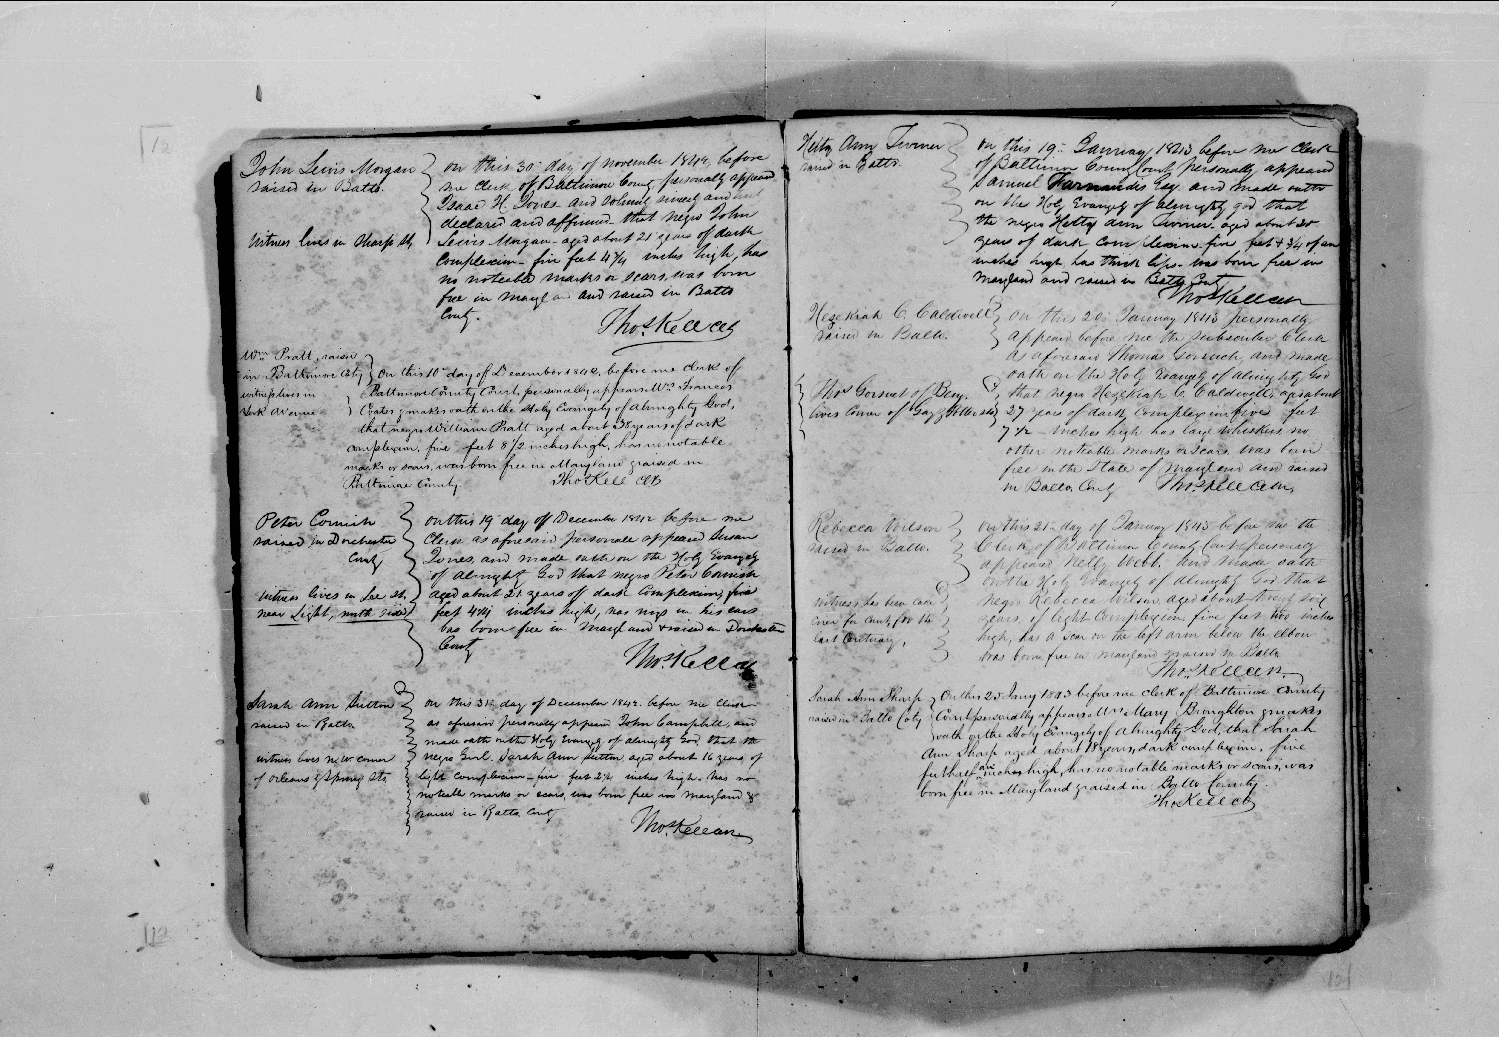 John Lewis Morgan
raised in Balto.
Witness lives in Sharp St
on this 30 day of november 1842, before
me Clerk of Baltimore County personally appeared
Isaac H. Jones and solemnly sincerely and
declared and affirmed that negro John
Lewis Morgan - aged about 21 years of dark
Complexion - five feet 4¼ inches high, has
no noteable marks or scars, was born
free in maryland and raised in Balto
County.
Thos Kell Clk
Wm Pratt, raised
in Baltimore City
witness lives in
York Avenue
On this 10th day of December 1842, before me clerk of
Baltimore County Court, personally appears Wm Francis
Coates & makes oath on the Holy Evangely of Almighty God,
that negro William Pratt aged about 38 years of dark
complexion, five feet 8½ inches high, has no notable
marks or scars, was born free in Maryland & raised in
Baltimore County
Thos Kell Clk
Peter Cornish
raised in Dorchester
County
witness lives in Lee St,
near Light, north side
on this 19 day of December 1842 before me
Clerk as aforesaid personale appeared Susan
Jones, and made oath on the Holy Evangely
of Almighty God that negro Peter Cornish
aged about 21 years off dark Complexion, five
feet 4¾ inches high, has rings in his ears
was born free in Maryland & raised in Dorchester
County
Thos Kell Clk
Sarah Ann Sutton
raised in Balto.
witness lives N.W. corner
of Orleans & Spring Sts
on this 31st day of December 1842. before me Clerk
as aforesaid personally appeared John Campbell, and
made oath on the Holy Evangely of Almighty God, that the
negro Girl, Sarah Ann Sutton aged about 16 years of
light Complexion - five feet 2¼ inches high. has no
noteable marks or scars, was born free in maryland &
raised in Balto. County
Thos. Kell Clk
Hetty Ann Turner
raised in Balto.
on this 19. January 1843 before me Clerk
of Baltimore County Court personally appeared
Samuel Farnandis Esq. and made oath
on the Holy Evangely of Almighty god that
the negro Hetty Ann Turner - aged about 20
years of dark Complexion five feet & ¾ of an
inches high has thick lips - was born free in
maryland and raised in Balto. County
Thos Kell Clk
Hezekiah C. Caldwell
raised in Balto.
Thos Gorsuch of Benj.
lives Corner of Gay &
on this 20. January 1843 personally
appeared before me the subscriber Clerk
as aforesaid Thomas Gorsuch, and made
oath on the Holy Evangely of Almighty God
that negro Hezekiah C. Caldwell, aged about
27 years of dark Complexion five feet
7½ inches high has large whiskers, no
other noteable marks or scars was born
free in the State of Maryland and raised
in Balto. County Thos. Kell Clk
Rebecca Wilson
raised in Balto.
witness has been
over for County for the
last Century,
on this 21st day of January 1843 before me the
Clerk of Baltimore County Court personally
appeared Nelly Webb. and made oath
on the Holy Evangely of Almighty God that
negro Rebecca Wilson, aged about twenty six
years. of light Complexion five feet two inches
high, has a scar on the left arm below the elbow
was born free in maryland & raised in Balto.
Thos Kell Clk
Sarah Ann Sharp
raised in Balto City
On this 25 Jany 1843 before me clerk of Baltimore County
Court personally appears Mrs Mary Broughton & makes
oath on the Holy Evangely of Almighty God, that Sarah
Ann Sharp aged about 18 years, dark complexion, five
feet three inches high, has no notable marks or scars, was
born free in Maryland & raised in Balto County.
Thos Kell Clk